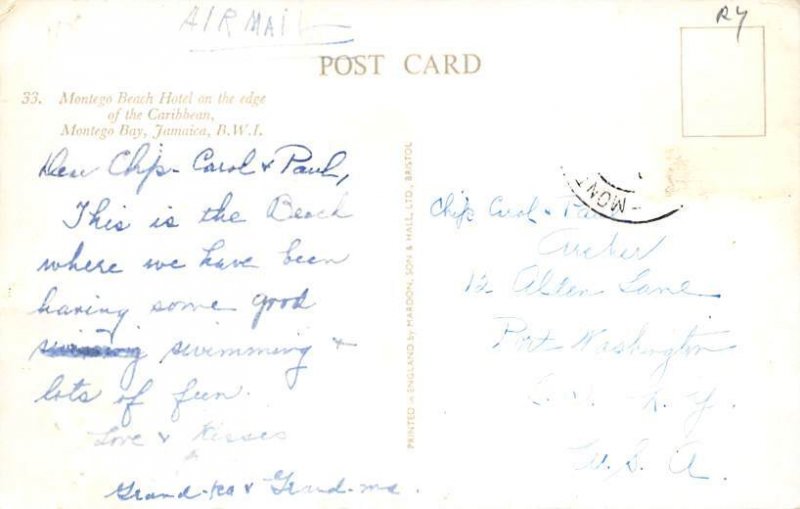 AIR MAIL
RY
POST CARD
33. Montego Beach Hotel on the edge
of the Caribbean,
Montego Bay, Jamaica, B.W.I.
Dear Chip - Carol & Paul,
This is the Beach
where we have been
having some good
swimming &
lots of fun.
Love & Kisses
Grand-pa & Grand-ma.
PRINTED in ENGLAND by MARDON, SON & HALL, LTD., BRISTOL
MONT
Chip Carol & Paul
Archer
12 Allen Lane
Port Washington
N. Y.
U. S. A.